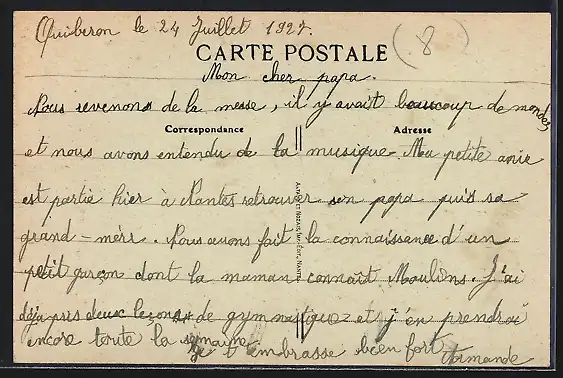 Quiberon le 24 Juillet 1927.
8
CARTE POSTALE
Mon cher papa.
Nous revenons de la messe, il y avait beaucoup de mondes
Correspondance
Adresse
et nous avons entendu de la musique. Ma petite amie
est partie hier à Nantes retrouver son papa puis sa
grand-mère. Nous avons fait la connaissance d'un
petit garçon dont la maman connaît Moulins. J'ai
déjà pris deux leçons de gymnastique et j'en prendrai
encore toute la semaine
Je t'embrasse bien fort Armande